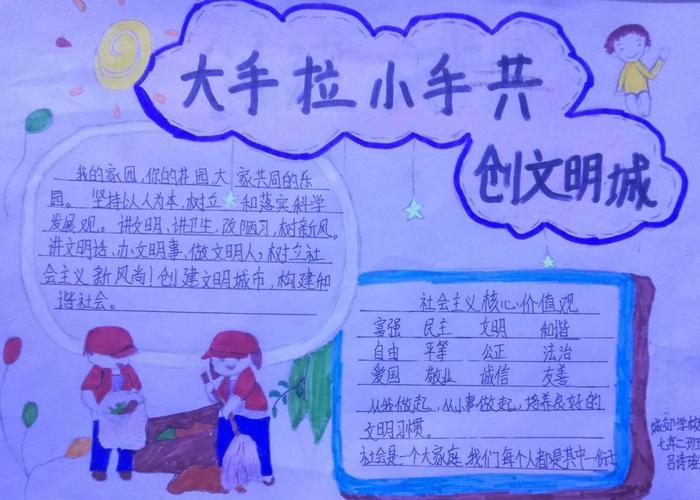 大手拉小手共
创文明城
我的家园,你的花园,大家共同的乐
园。坚持以人为本,树立和落实科学
发展观。讲文明,讲卫生,改陋习,树新风。
讲文明话,办文明事,做文明人,树立社
会主义新风尚!创建文明城市,构建和
谐社会。
社会主义核心价值观
富强 民主 文明 和谐
自由 平等 公正 法治
爱国 敬业 诚信 友善
从我做起,从小事做起,培养良好的
文明习惯。
社会是一个大家庭,我们每个人都是其中一份子
城郊学校
七年二班
吕诗瑶